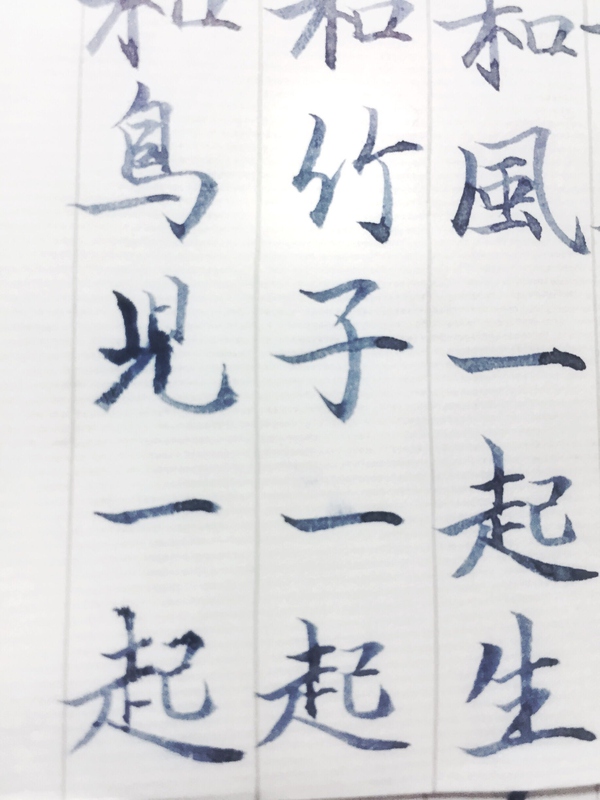 和風一起生
和竹子一起
和鳥児一起